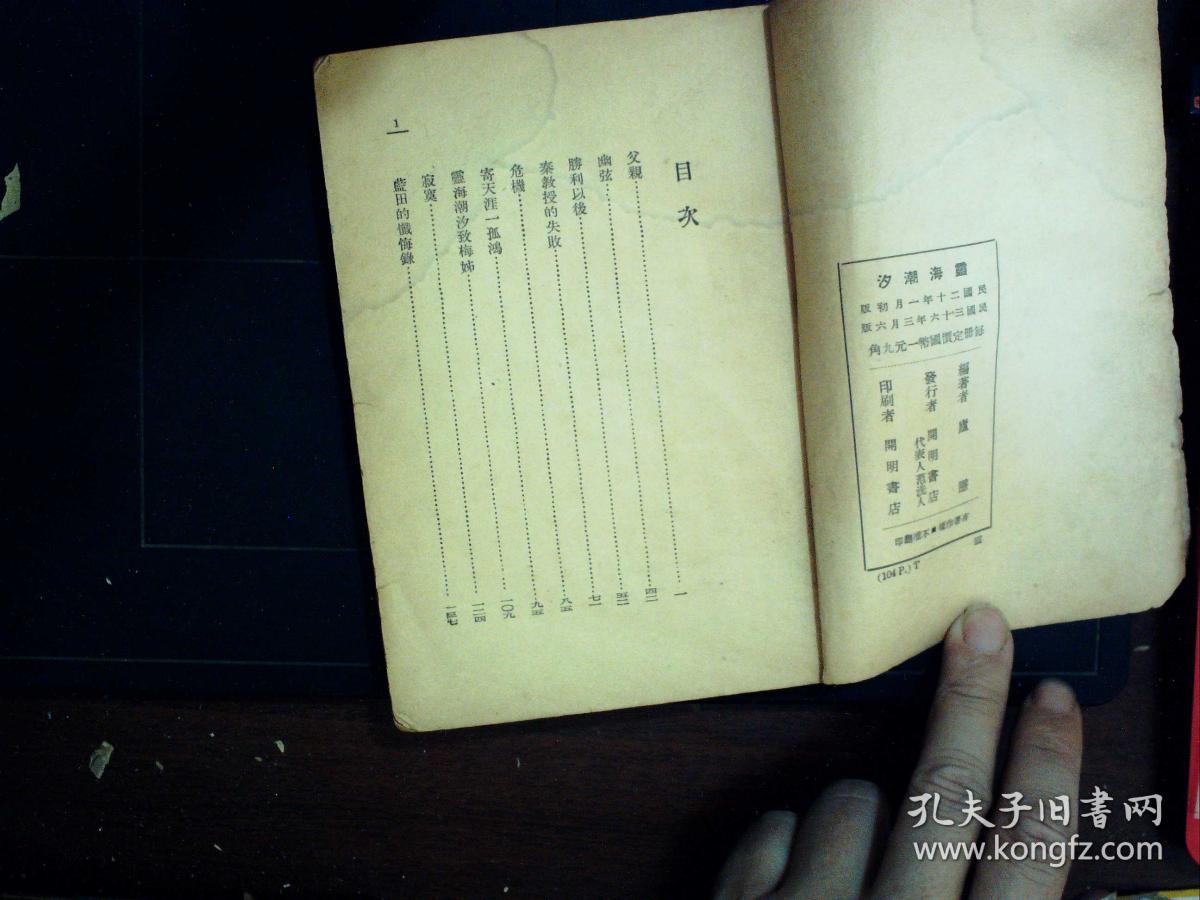 靈海潮汐
民國二十年一月初版
民國三十六年三月六版
每冊定價國幣一元九角
編著者 廬隱
發行者 開明書店
代表人范洗人
印刷者 開明書店
有著作權■不准翻印
(104 P.) T
目次
父親……一
幽弦……四二
勝利以後……五二
秦教授的失敗……七一
危機……八五
寄天涯一孤鴻……九五
靈海潮汐致梅姊……一〇九
寂寞……一二四
藍田的懺悔錄……
1
孔夫子旧书网
www.kongfz.com